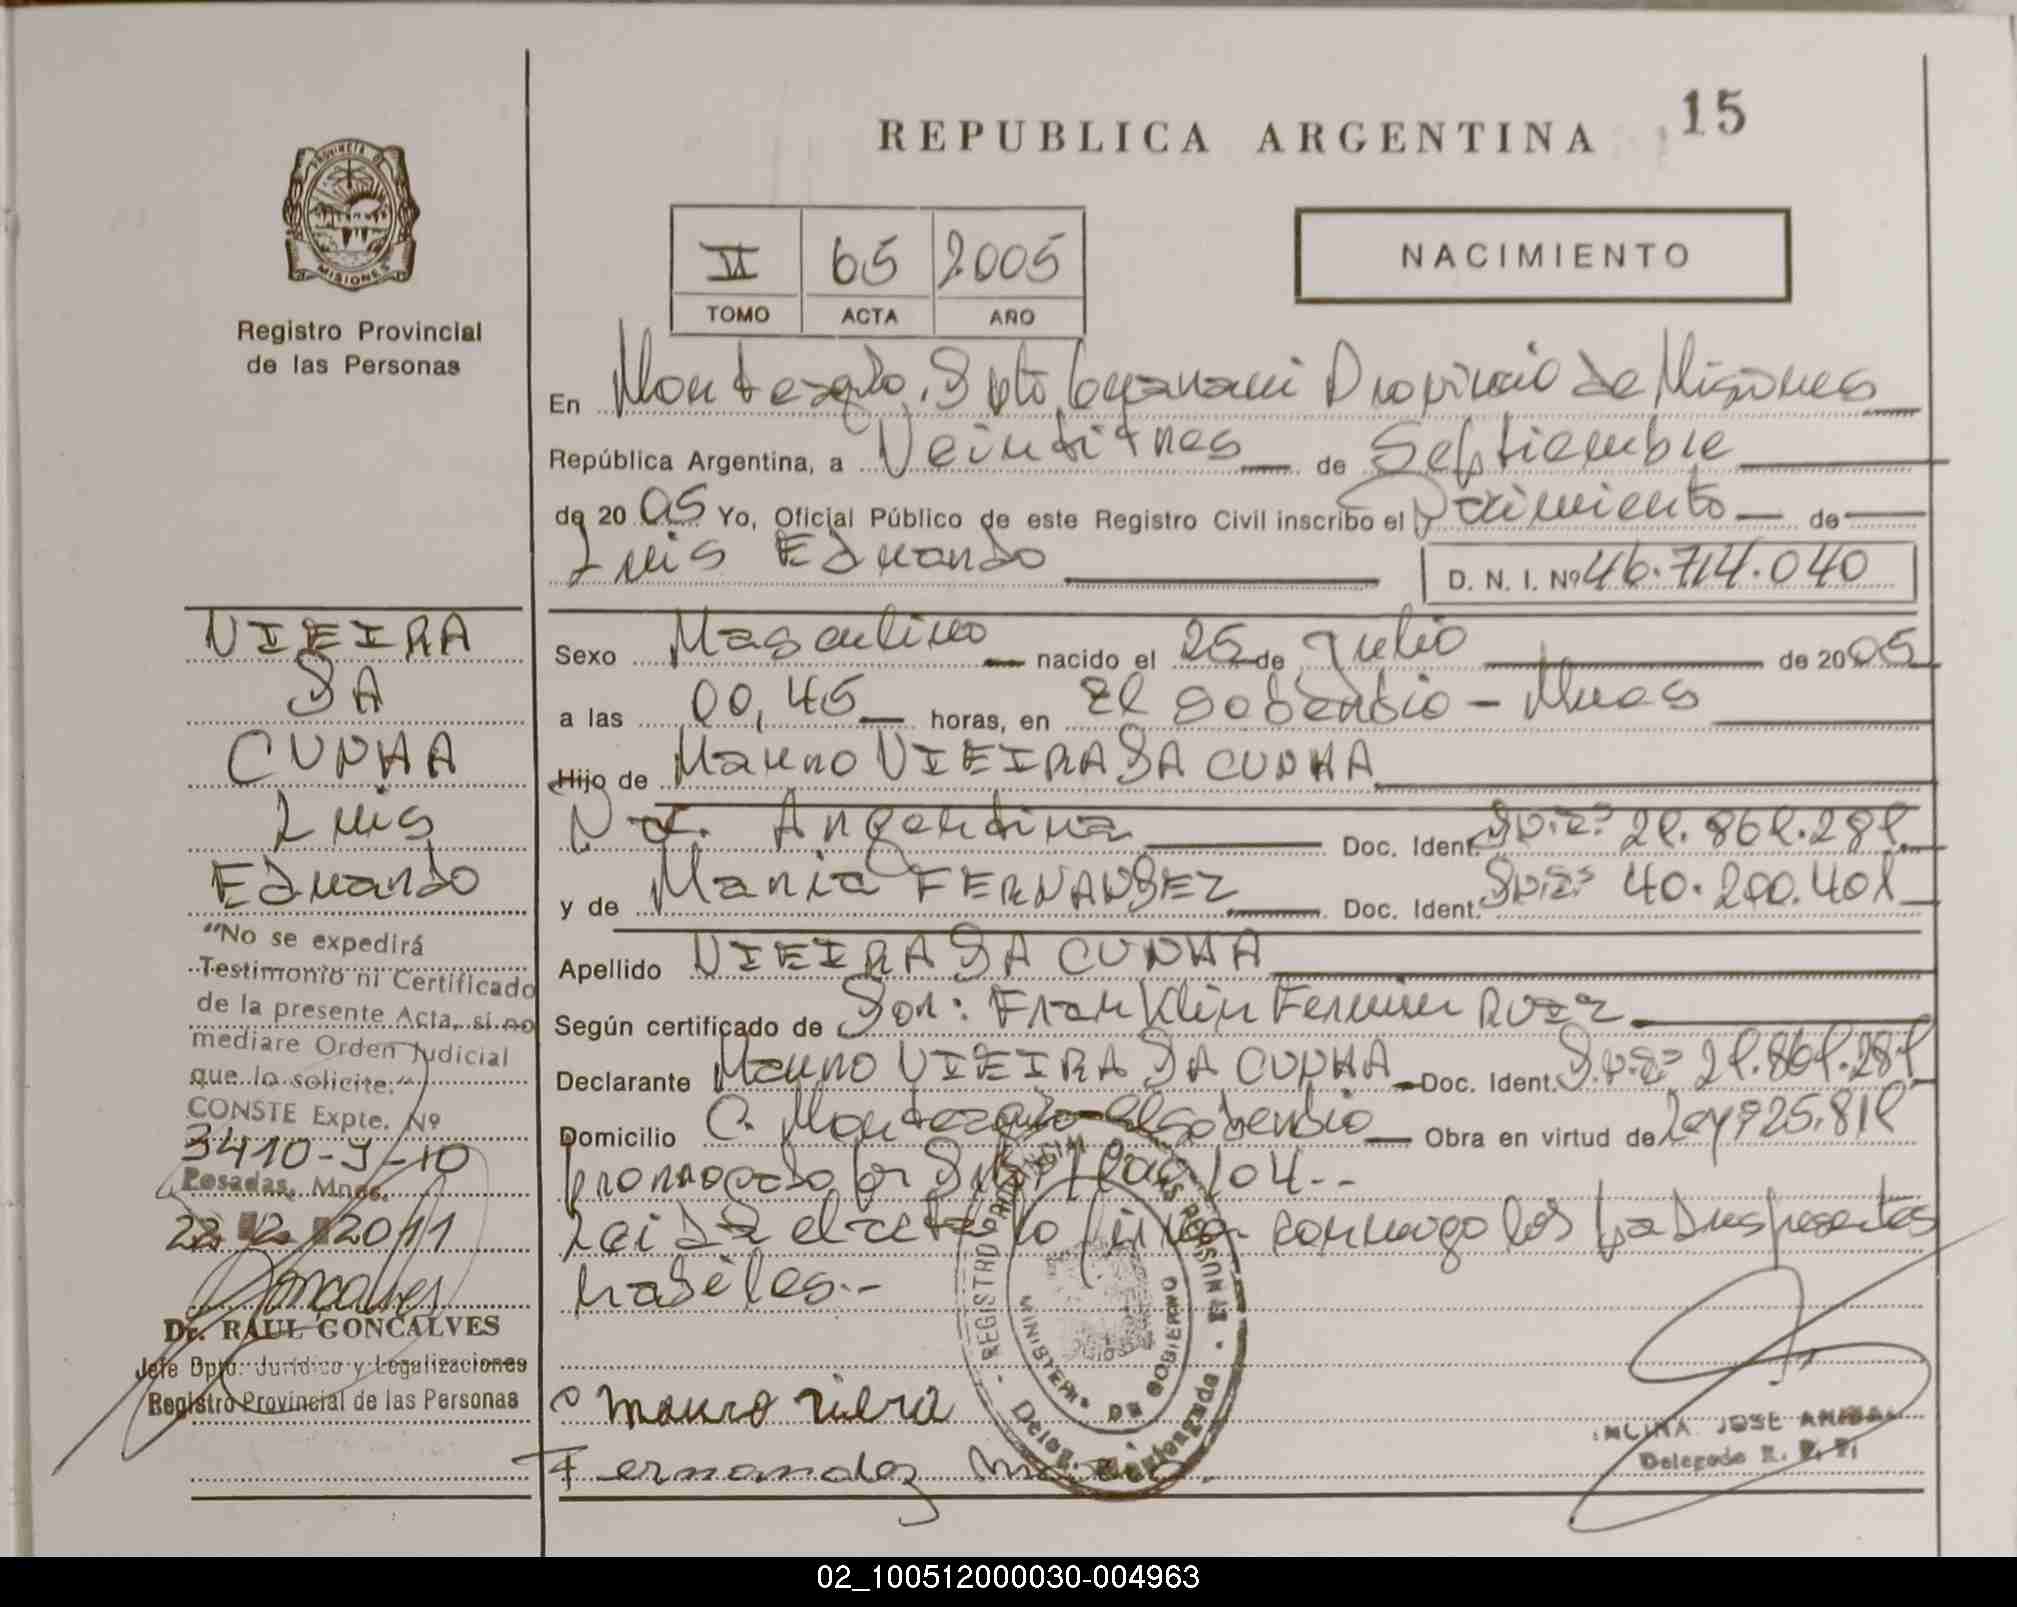 REPUBLICA ARGENTINA 15
PROVINCIA DE
MISIONES
Registro Provincial
de las Personas
II 65 2005
TOMO ACTA AÑO
NACIMIENTO
En Provincia de Misiones
República Argentina, a Veintitres de Septiembre
de 20 05 Yo, Oficial Público de este Registro Civil inscribo el Nacimiento de
Luis Eduardo
D. N. I. Nº 46.714.040
VIEIRA
DA
CUNHA
Luis
Eduardo
"No se expedirá
Testimonio ni Certificado
de la presente Acta, si no
mediare Orden Judicial
que lo solicite."
CONSTE Expte. Nº
3410-9-10
Posadas, Mnes.
22 12 2011
Goncalves
Dr. RAUL GONCALVES
Jefe Dpto. Jurídico y Legalizaciones
Registro Provincial de las Personas
Sexo Masculino nacido el 25 de Julio de 2005
a las 00,45 horas, en El Soberbio - Mnes
Hijo de Mauro VIEIRA DA CUNHA
Nac. Argentina Doc. Ident.
y de Maria FERNANDEZ Doc. Ident.
Apellido VIEIRA DA CUNHA
Según certificado de Dor: Franklin Fermin RUIZ
Declarante Mauro VIEIRA DA CUNHA Doc. Ident.
Domicilio C. Monteagudo El Soberbio Obra en virtud de Ley
prorrogado por
Leida el acta lo firman conmigo los padres presentes
habiles.-
mauro viera
Fernandez
REGISTRO PROVINCIAL DE LAS PERSONAS
MINISTERIO DE GOBIERNO
JOSE ANIBAL
Delegado R. P. P.
02_100512000030-004963